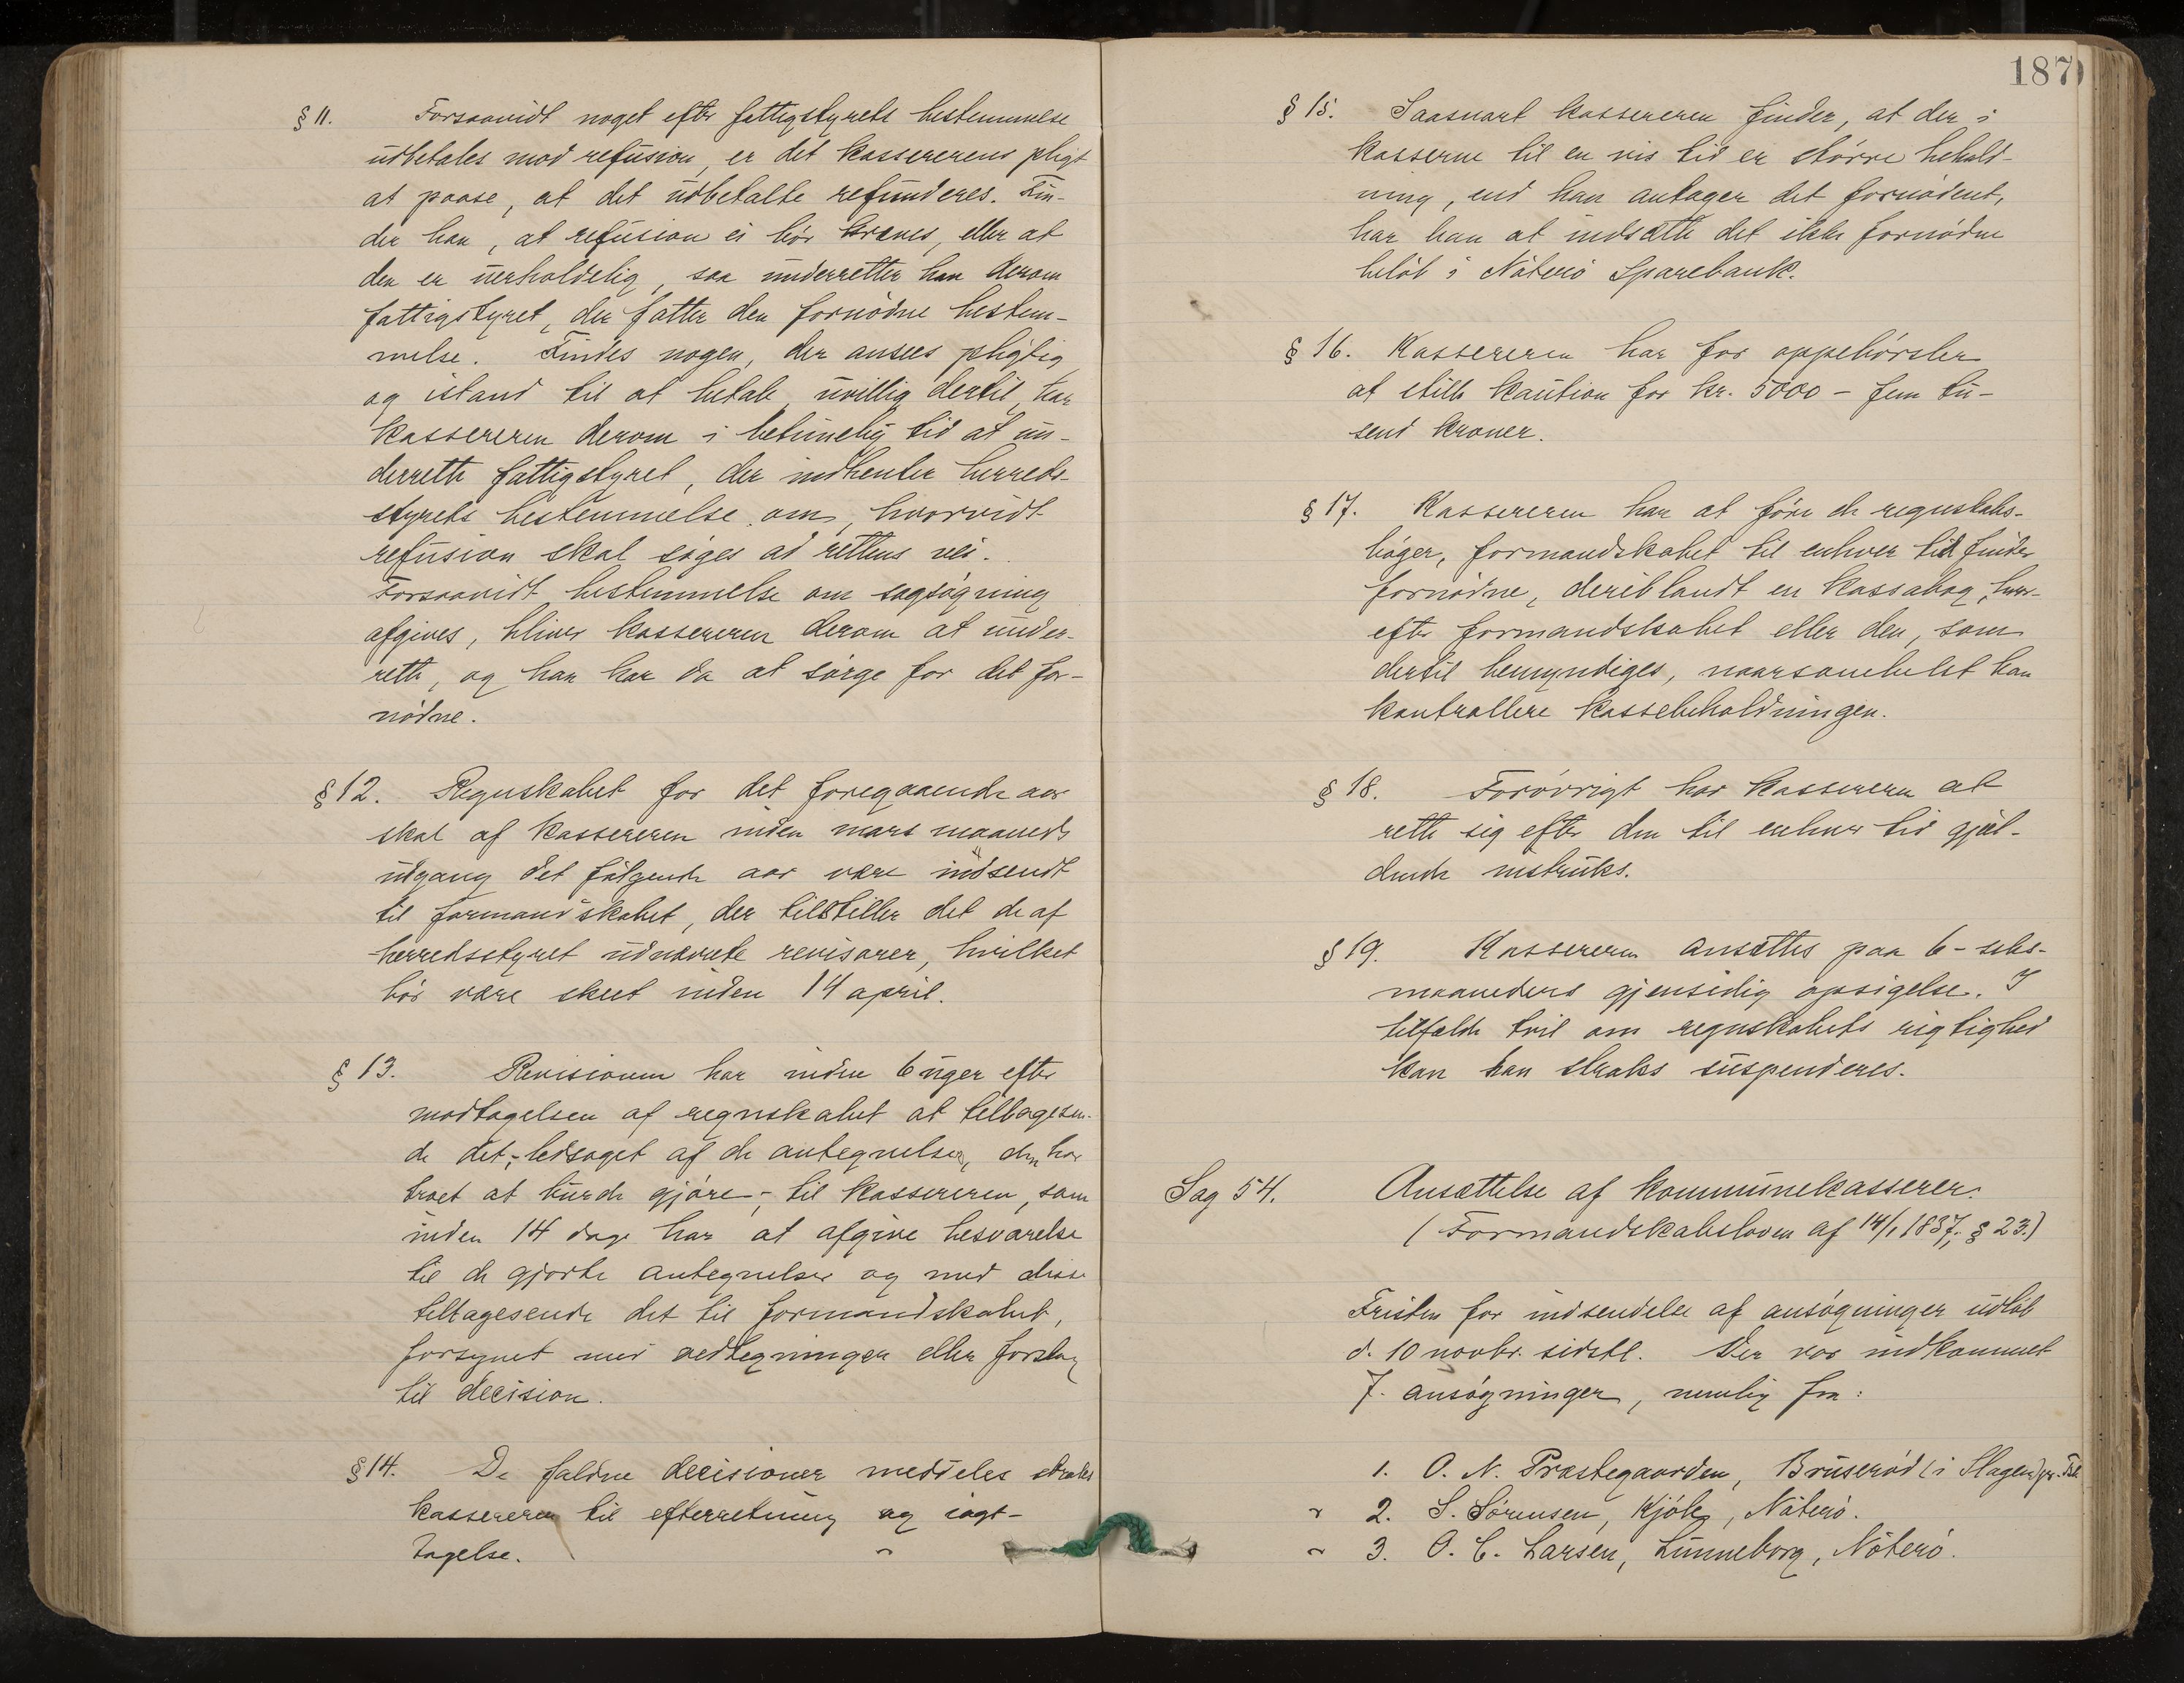 § 11. Forsaavidt noget efter fattigstyrets bestemmelse
udbetales mod refusion, er det kassererens pligt
at paase, at det udbetalte refunderes. Fin-
der han, at refusion ei bör kræves, eller at
den er uerholdelig, saa underretter han derom
fattigstyret, der fatter den fornödne bestem-
melse. Findes nogen, der ansees pligtig
og istand til at betale, uvillig dertil, har
kassereren derom i betimelig tid at un-
derrette fattigstyret, der indhenter herreds-
styrets bestemmelse om, hvorvidt
refusion skal söges ad rettens vei.
Forsaavidt bestemmelse om sagsögning
afgives, bliver kassereren derom at under-
rette, og han har da at sörge for det for-
nödne.
§ 12. Regnskabet for det foregaaende aar
skal af kassereren inden mars maaneds
udgang det fölgende aar være indsendt
til formandskabet, der tilstiller det de af
herredsstyret udnævnte revisorer, hvilket
bör være skeet inden 14 april.
§ 13. Revisionen har inden 6 uger efter
modtagelsen af regnskabet at tilbagesen-
de det,- ledsaget af de antegnelser, den har
troet at burde gjöre,- til kassereren, som
inden 14 dage har at afgive besvarelse
til de gjorte antegnelser og med disse
tilbagesende det til formandskabet,
forsynet med vedtegninger eller forslag
til decision.
§ 14. De faldne decisioner meddeles straks
kassereren til efterretning og iagt-
tagelse.
187
§ 15. Saasnart kassereren finder, at der i
kasserne til en vis tid er större behold-
ning, end han antager det fornödent,
har han at indsætte det ikke fornödne
belöb i Nöterö Sparebank.
§ 16. Kassereren har for oppebörsler
at stille kaution for kr. 5000 - fem tu-
send kroner.
§ 17. Kassereren har at före de regnskabs-
böger, formandskabet til enhver tid finder
fornödne, deriblandt en kassabog, hvor-
efter formandskabet eller den, som
dertil bemyndiges, naarsomhelst kan
kontrollere kassebeholdningen.
§ 18. Forövrigt har kassereren at
rette sig efter den til enhver tid gjæl-
dende instruks.
§ 19. Kassereren ansættes paa 6 - seks-
maaneders gjensidig opsigelse. I
tilfælde tvil om regnskabets rigtighed
kan han straks suspenderes.
Sag 54. Ansættelse af kommunekasserer.
(Formandskabsloven af 14/1 1837, § 23.)
Fristen for indsendelse af ansögninger udlöb
d. 10 novbr. sidstl. Der var indkommet
7. ansögninger, nemlig fra:
1. O. N. Præstegaarden, Bruseröd (i Slagen) pr.
" 2. S. Sörensen, Kjöle, Nöterö.
" 3. O. C. Larsen, Lunneborg, Nöterö.